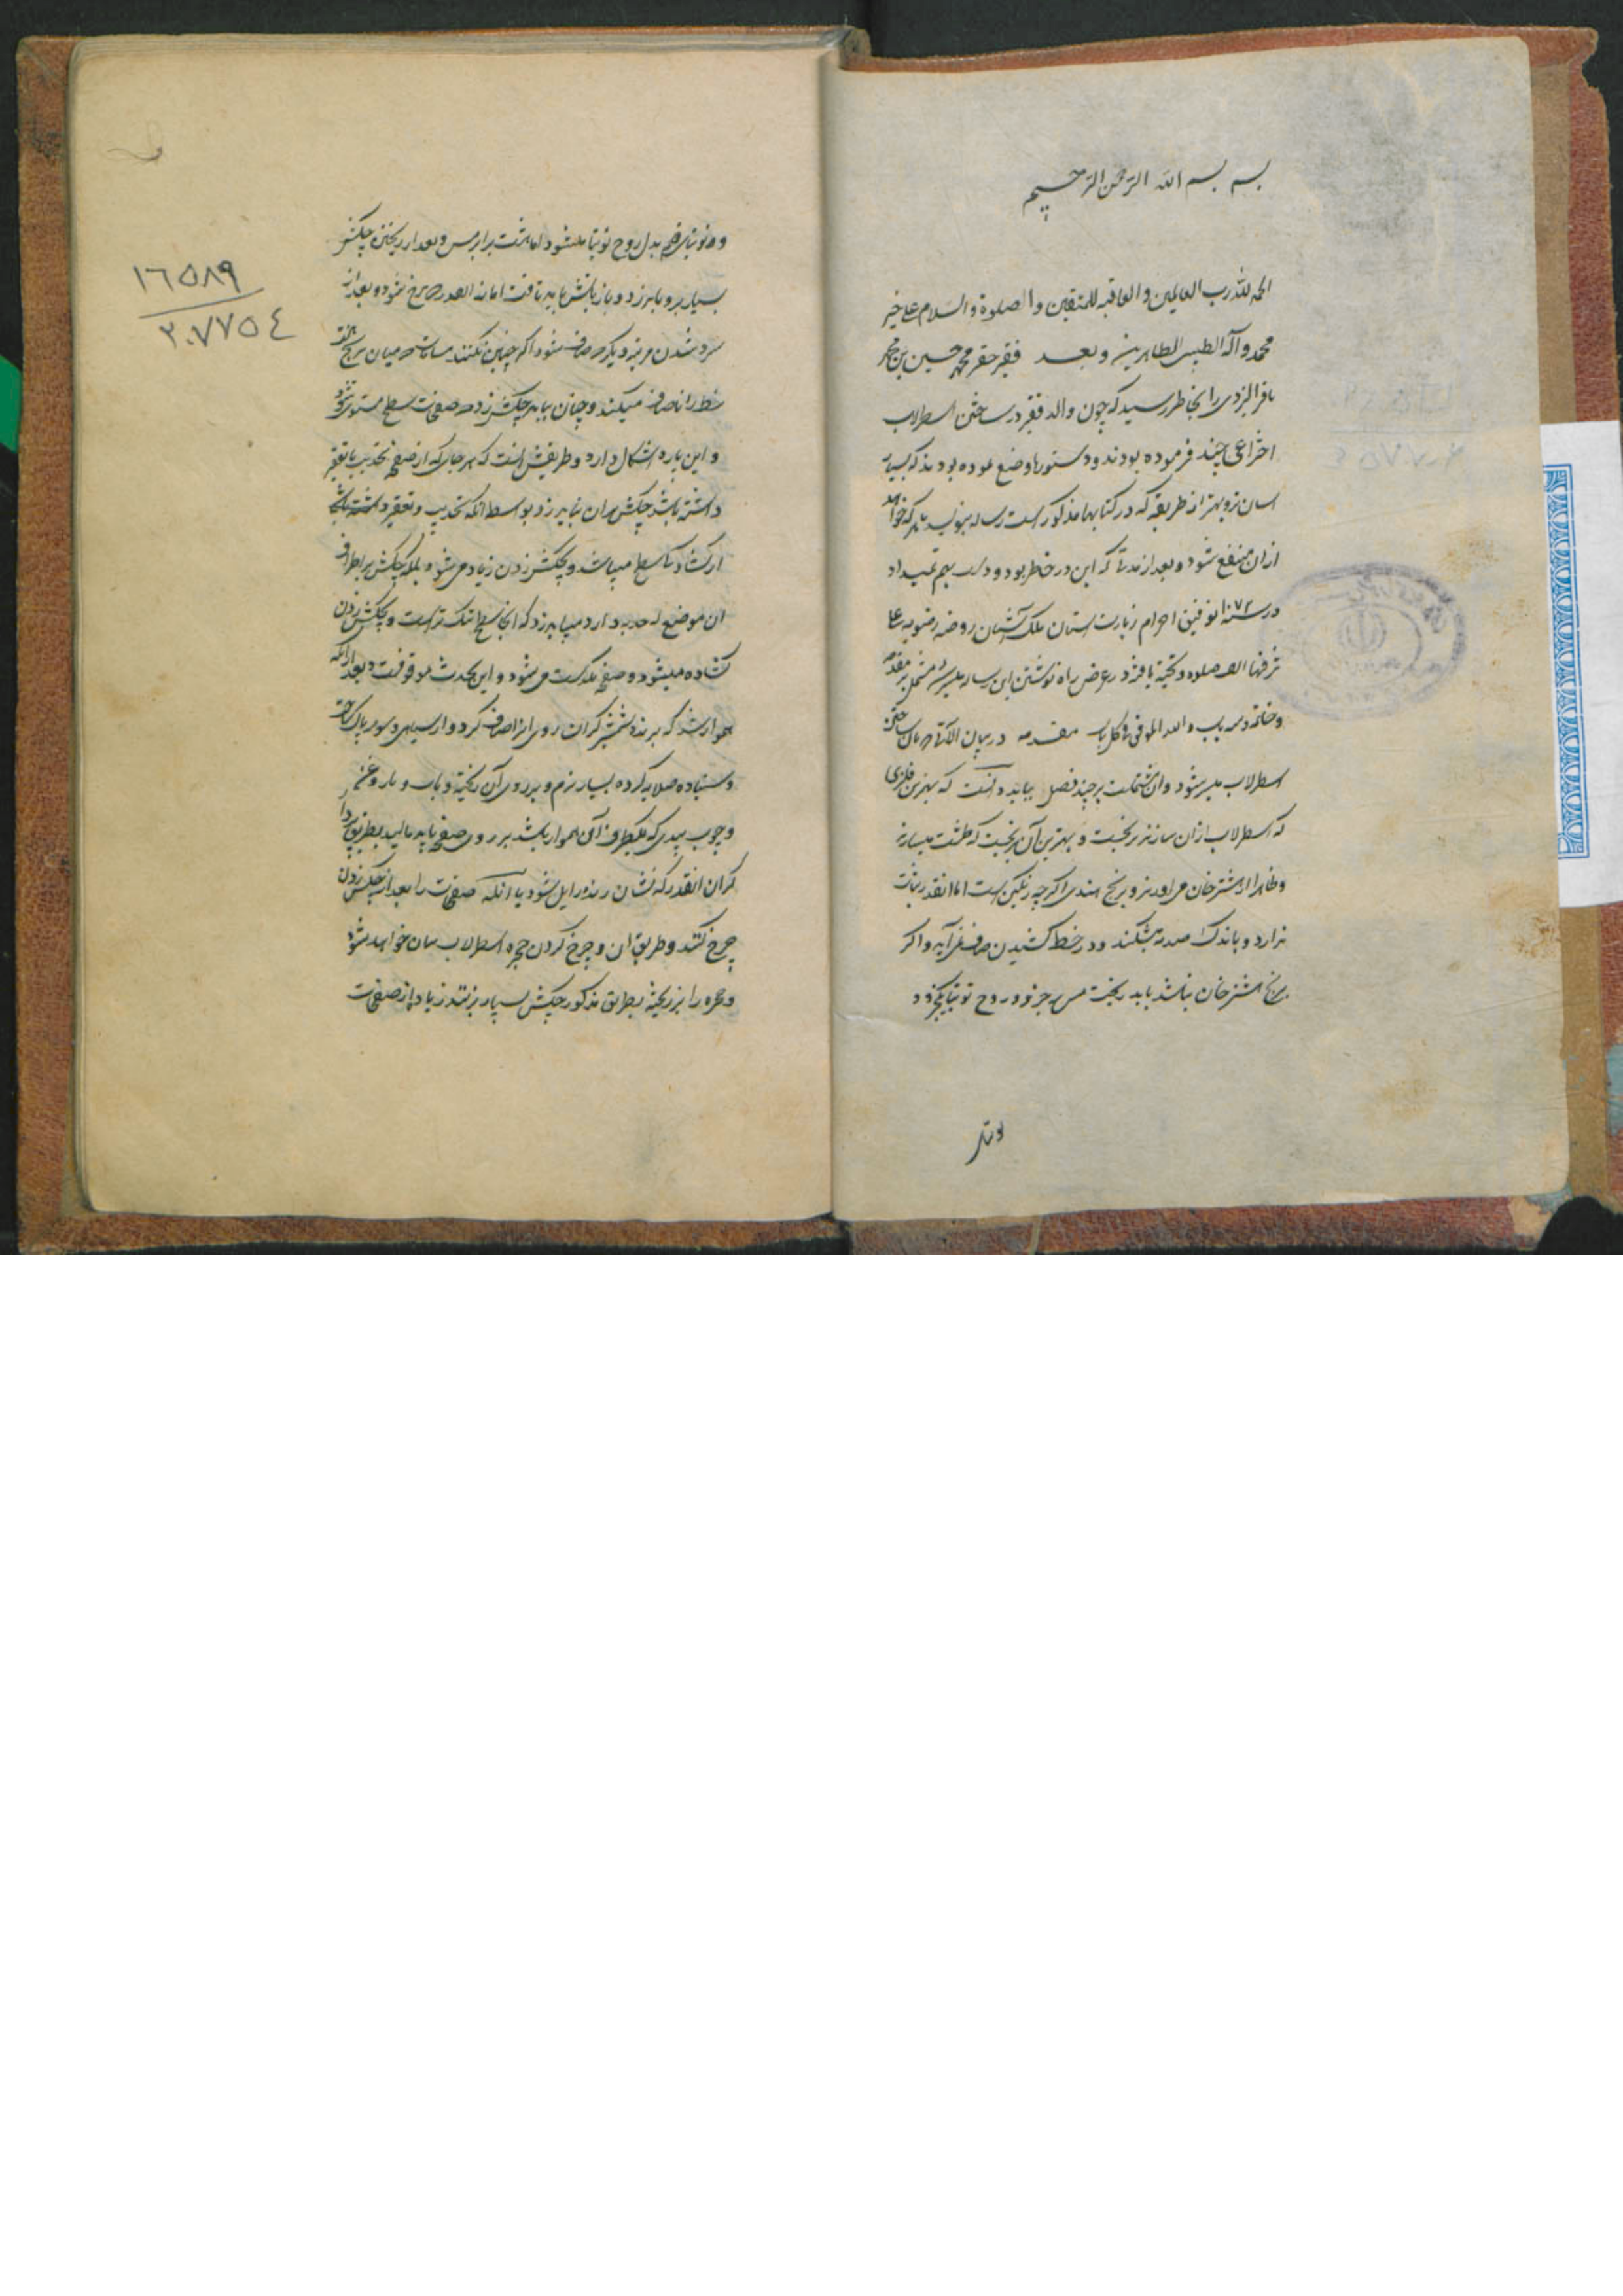 بسم الله الرحمن الرحیم
الحمد لله رب العالمین و العاقبه للمتقین و الصلوة و السلام علی خیر
محمد و آله الطیبین الطاهرین و بعد فقیر حقیر محمد حسین بن محمد
باقر الیزدی را بخاطر رسید که چون والد فقیر در ساختن اسطرلاب
اختراعی چند فرموده بودند و دستورها وضع نموده بودند که بسیار
اسان تر و بهتر از طریقه که در کتابها مذکور است رساله بنویسد تا هر که خواهد
ازان منتفع شود و بعد از مدتها که این در خاطر بود و دست بهم نمیداد
در سنه ۱۰۷۲ توفیق احرام زیارت استان ملک آشیان روضه رضویه علی
مشرفها الف صلوه و تحیة یافته در عرض راه نوشتن این رساله میسر شد مشتمل بر مقدمه
و خاتمه و سه باب و الله الموفق فی کل باب مقدمه در بیان الاتی که بان ساختن
اسطرلاب میسر شود و ان مشتملست بر چند فصل بباید دانست که بهترین فلزی
که اسطرلاب ازان سازند برنجست و بهترین آن برنجیست که طشت میسازند
و ظاهرا از اشترخان می اورند و برنج هندی اگرچه رنگین است اما انقدر متانت
ندارد و باندک صدمه میشکند و در خط کشیدن صاف نمی آید و اگر
برنج اشترخان نباشد باید ریخت مس سه جزو و روح توتیا یکجزو و
و توتیای قلم بدل روح توتیا میشود اما برابر مس و بعد از ریختن چکش
بسیار برو باید زد و باز باتش باید تافت اما نه انقدر که سرخ شود و بعد از
سرد شدن مرتبه دیگر صاف شود اگر چنین نکنند میان برنج
خط را ناصاف میکند و چنان باید چکش زد که صفحات سطح مستوی شود
و این پاره اشکال دارد و طریقش انست که هر جای که از صفحه تحدیب یا تقعیر
داشته باشد چکش بران نباید زد بواسطه انکه تحدیب و تقعیر
از کشادگی سطح میباشد و بچکش زدن زیاد می شود بلکه چکش بر اطراف
ان موضع که حدبه دارد میباید زد که انجا سطح تنک تر است و بچکش زدن
کشاده میشود و صفحه راست می شود و این بحدث موقوفست و بعد از انکه
هموار شد که برنده شمشیرگران روی انرا صاف کرد و از سیاهی و سوراخ پاک ساخت
و سنباده صلایه کرده بسیار نرم و بر روی آن ریخته و باب و یا روغن
و چوب بیدی که یکطرف آن هموار باشد بر روی صفحه باید مالید بطریق
گران انقدر که نشان رنده زایل شود یا آنکه صفحات را بعد از چکش زدن
چرخ کنند و طریق ان و چرخ کردن حجره اسطرلاب بیان خواهد شد
و حجره را نیز ریخته بطریق مذکور چکش بسیار بزنند زیاده از صفحات
و توتیای
۱۶۵۸۹
۲۰۷۷۵۴